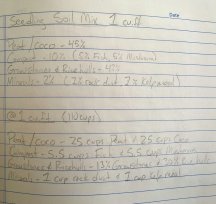 Seedling Soil Mix 1 cu.ft
Date
Peat/coco - 45%
Compost - 10% (5% Fish, 5% Mushroom)
Growstones & Ricehulls - 43%
Minerals - 2% (2% rock dust, 2% Kelp meal)
@ 1 cu.ft (110 cups)
Peat/coco - 25 cups Peat & 25 cups Coco
Compost - 5.5 cups Fish & 5.5 cups Mushroom
Growstones & Ricehulls - 13% Growstones & 30% Rice hulls
Minerals - 1 cup rock dust & 1 cup Kelp meal